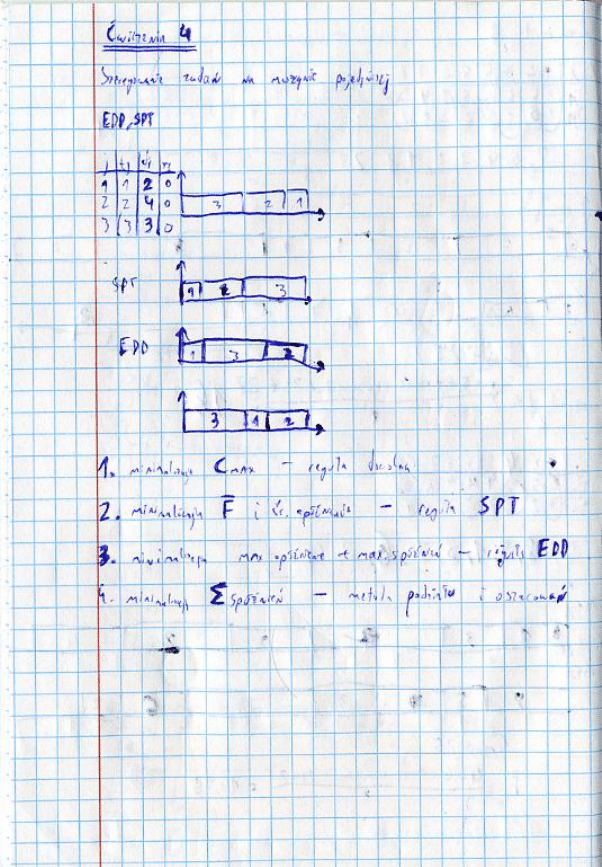 Ćwiczenia 4
Szeregowanie zadań na maszynie pojedynczej
EDD, SPT
j tj dj rj
1 1 2 0
2 2 4 0
3 3 3 0
3 2 1
SPT 1 2 3
EDD 1 3 2
3 1 2
1. minimalizacja Cmax – reguła dowolna
2. minimalizacja F̄ i śr. opóźnienia – reguła SPT
3. minimalizacja max opóźnienie max. spóźnień – reguła EDD
4. minimalizacja Σ spóźnień – metoda podziału i oszacowań